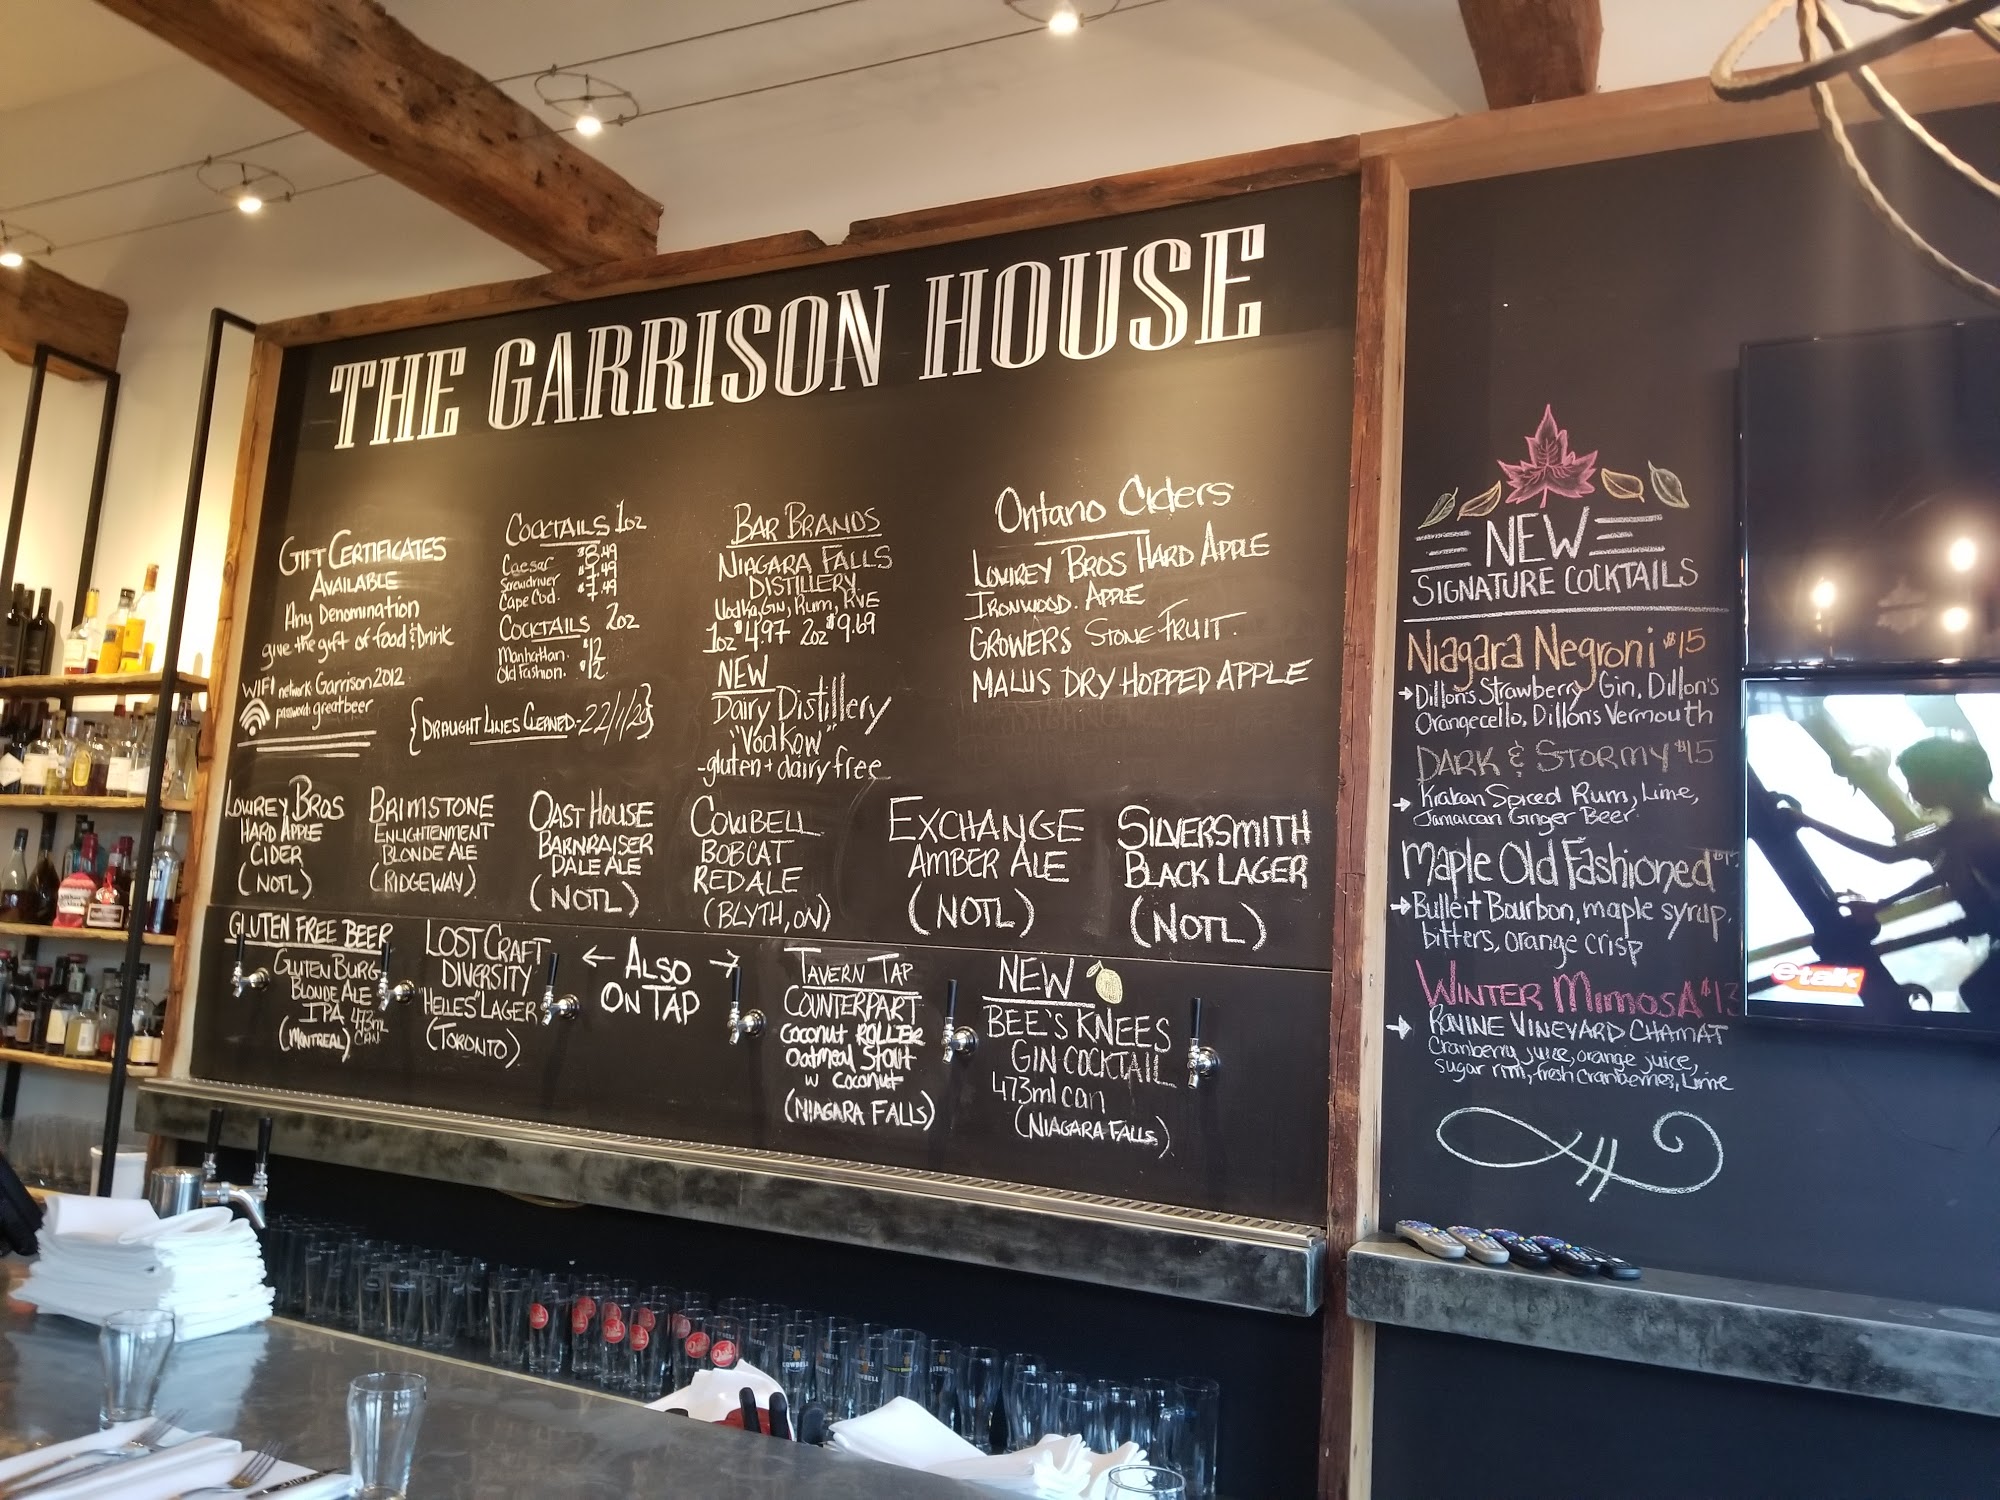 THE GARRISON HOUSE
GIFT CERTIFICATES
AVAILABLE
Any Denomination
give the gift of food & Drink
WIFI network: Garrison2012
password: greatbeer
COCKTAILS 1oz
Caesar $8.49
Screwdriver $7.49
Cape Cod. $7.49
COCKTAILS 2oz
Manhattan. $12
Old Fashion. $12
{DRAUGHT LINES CLEANED-22/1/20}
BAR BRANDS
NIAGARA FALLS
DISTILLERY
Vodka, GIN, Rum, RYE
1oz $4.97 2oz $9.69
NEW
Dairy Distillery
"VodKow"
-gluten + dairy free
Ontario Ciders
LOWREY BROS HARD APPLE
IRONWOOD. APPLE
GROWERS STONE FRUIT.
MALUS DRY HOPPED APPLE
LOWREY BROS
HARD APPLE
CIDER
(NOTL)
BRIMSTONE
ENLIGHTENMENT
BLONDE ALE
(RIDGEWAY)
OAST HOUSE
BARNRAISER
PALE ALE
(NOTL)
COWBELL
BOBCAT
RED ALE
(BLYTH, ON)
EXCHANGE
AMBER ALE
(NOTL)
SILVERSMITH
BLACK LAGER
(NOTL)
GLUTEN FREE BEER
GLUTEN BURG
BLONDE ALE
IPA 473ml
(MONTREAL) CAN
LOST CRAFT
DIVERSITY
"HELLES" LAGER
(TORONTO)
← ALSO →
ON TAP
TAVERN TAP
COUNTERPART
COCONUT ROLLER
Oatmeal Stout
w coconut
(NIAGARA FALLS)
NEW
BEE'S KNEES
GIN COCKTAIL
473ml can
(NIAGARA FALLS)
NEW
SIGNATURE COCKTAILS
Niagara Negroni $15
→Dillon's Strawberry Gin, Dillon's
Orangecello, Dillon's Vermouth
DARK & STORMY $15
→ Krakan Spiced Rum, Lime,
Jamaican Ginger Beer
Maple Old Fashioned
→Bulleit Bourbon, maple syrup,
bitters, orange crisp
WINTER MIMOSA $13
→ RAVINE VINEYARD CHARMAT
Cranberry juice, orange juice,
sugar rim, fresh cranberries, Lime
etalk
COWBELL